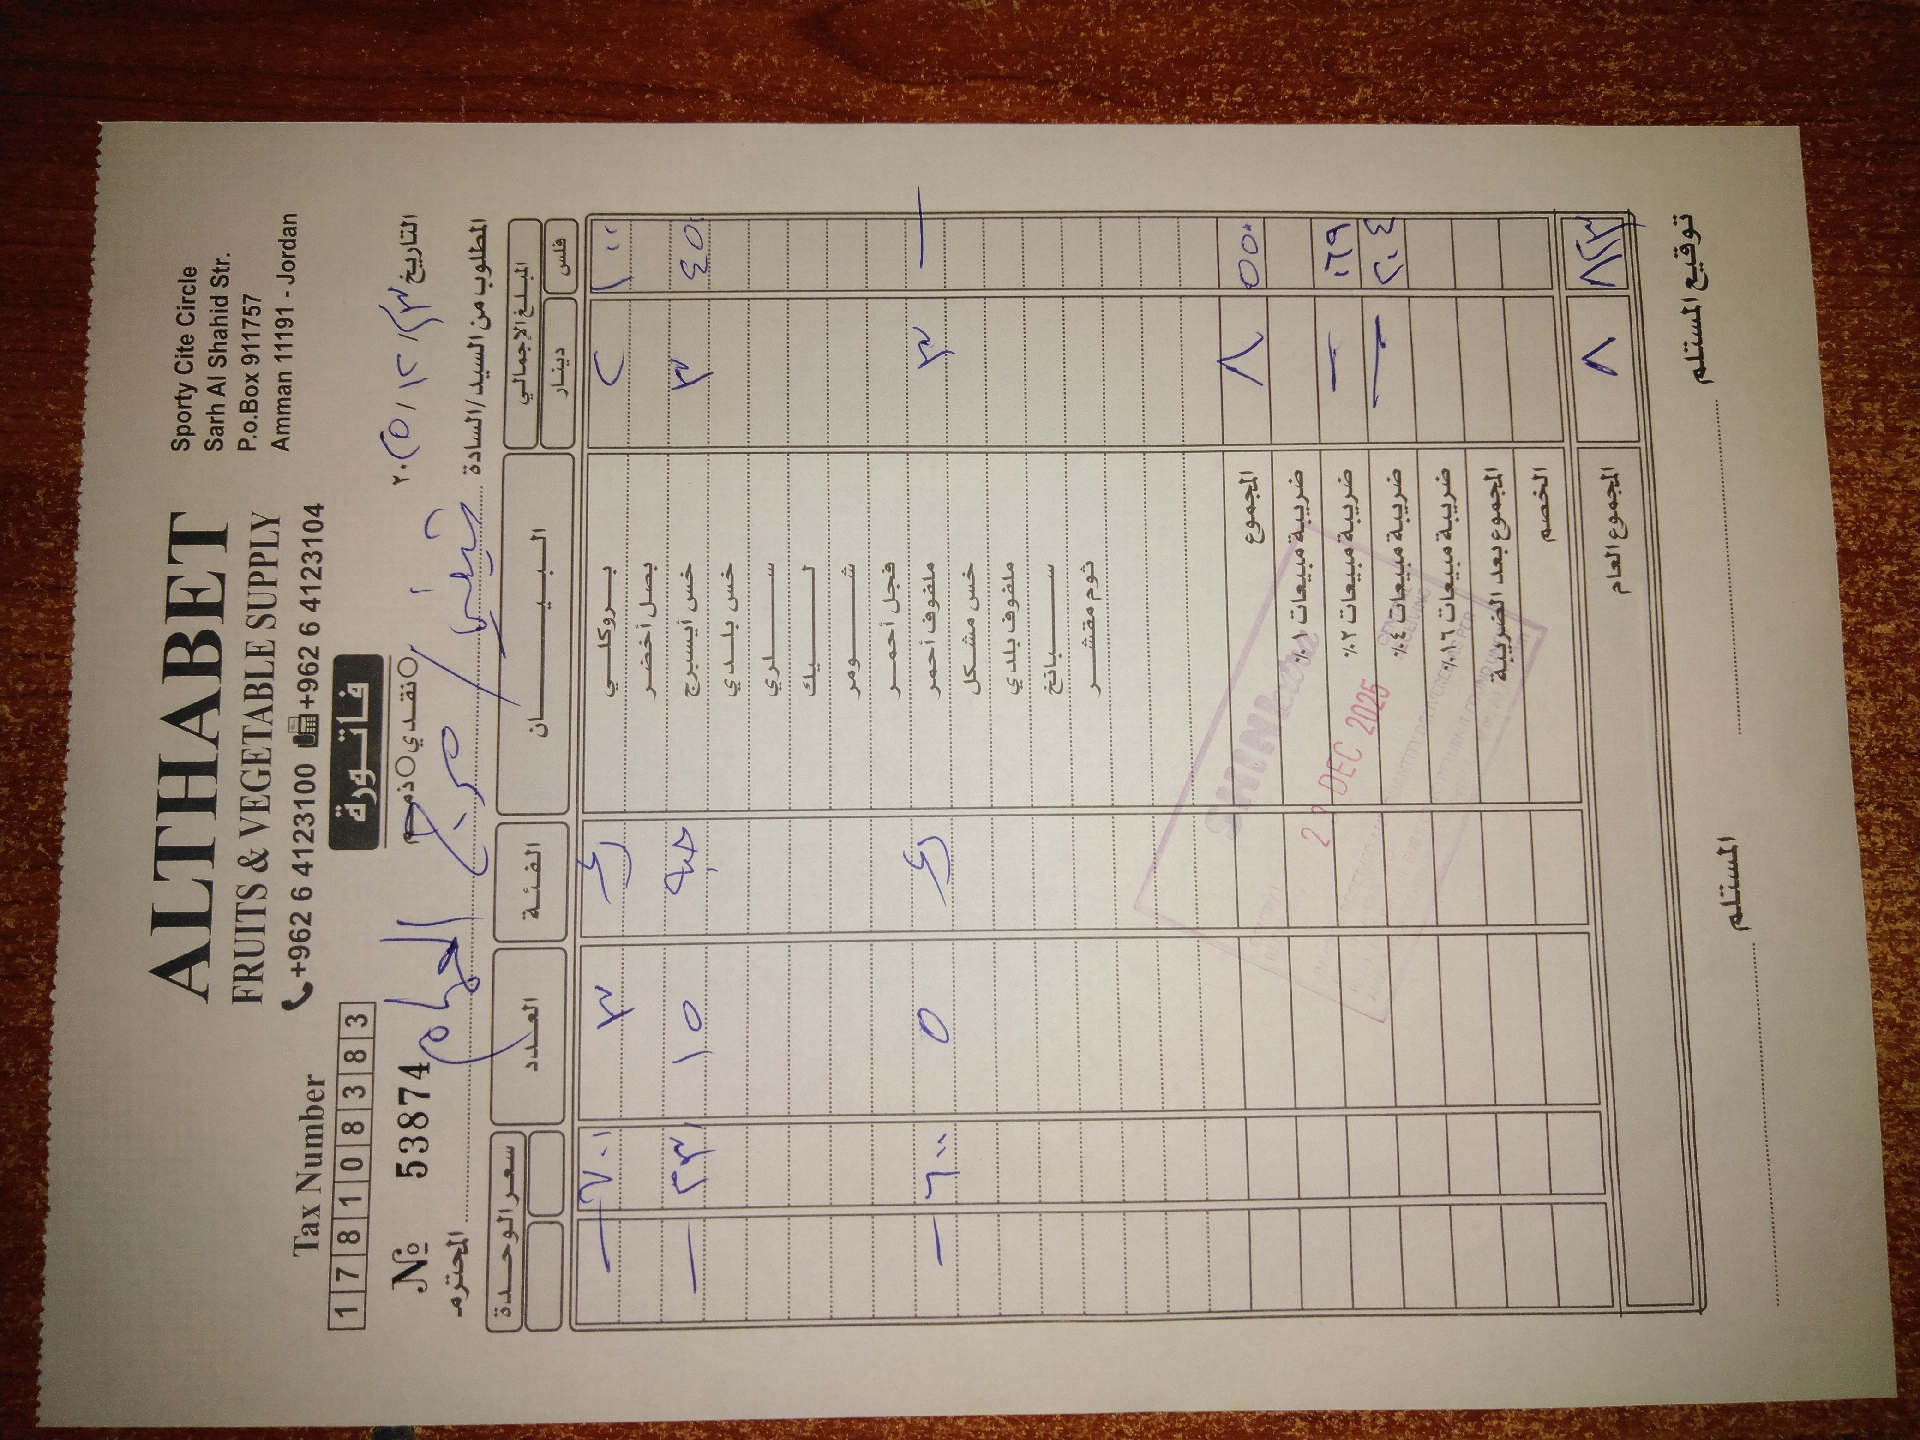 ALTHABET
FRUITS & VEGETABLE SUPPLY
+962 6 4123100 +962 6 4123104
Sporty Cite Circle
Sarh Al Shahid Str.
P.o.Box 911757
Amman 11191 - Jordan
Tax Number
1 7 8 1 0 8 3 8 3
فاتورة
نقدي ذمم
№ 53874
التاريخ ٢٣ / ١٢ / ٢٠٢٥
المطلوب من السيد/السادة / المحترم
المبلغ الاجمالي البيـــان الفئة العدد سعر الوحدة
فلس دينار
١٠٠ ٢ بروكلي ك ٣ ٧٠٠ —
بصل أخضر
٤٥٠ ٣ خس أيسبرج حبة ١٥ ٢٣٠ —
خس بلدي
سلري
ليك
شومر
فجل أحمر
— ٣ ملفوف أحمر ك ٥ ٦٠٠ —
خس مشكل
ملفوف بلدي
سبانخ
ثوم مقشر
٥٥٠ ٨ المجموع
ضريبة مبيعات ١٪
٠٦٩ — ضريبة مبيعات ٢٪
٢٠٤ — ضريبة مبيعات ٤٪
ضريبة مبيعات ١٦٪
المجموع بعد الضريبة
الخصم
٨٢٣ ٨ المجموع العام
DEC 2025
توقيع المستلم
المستلم